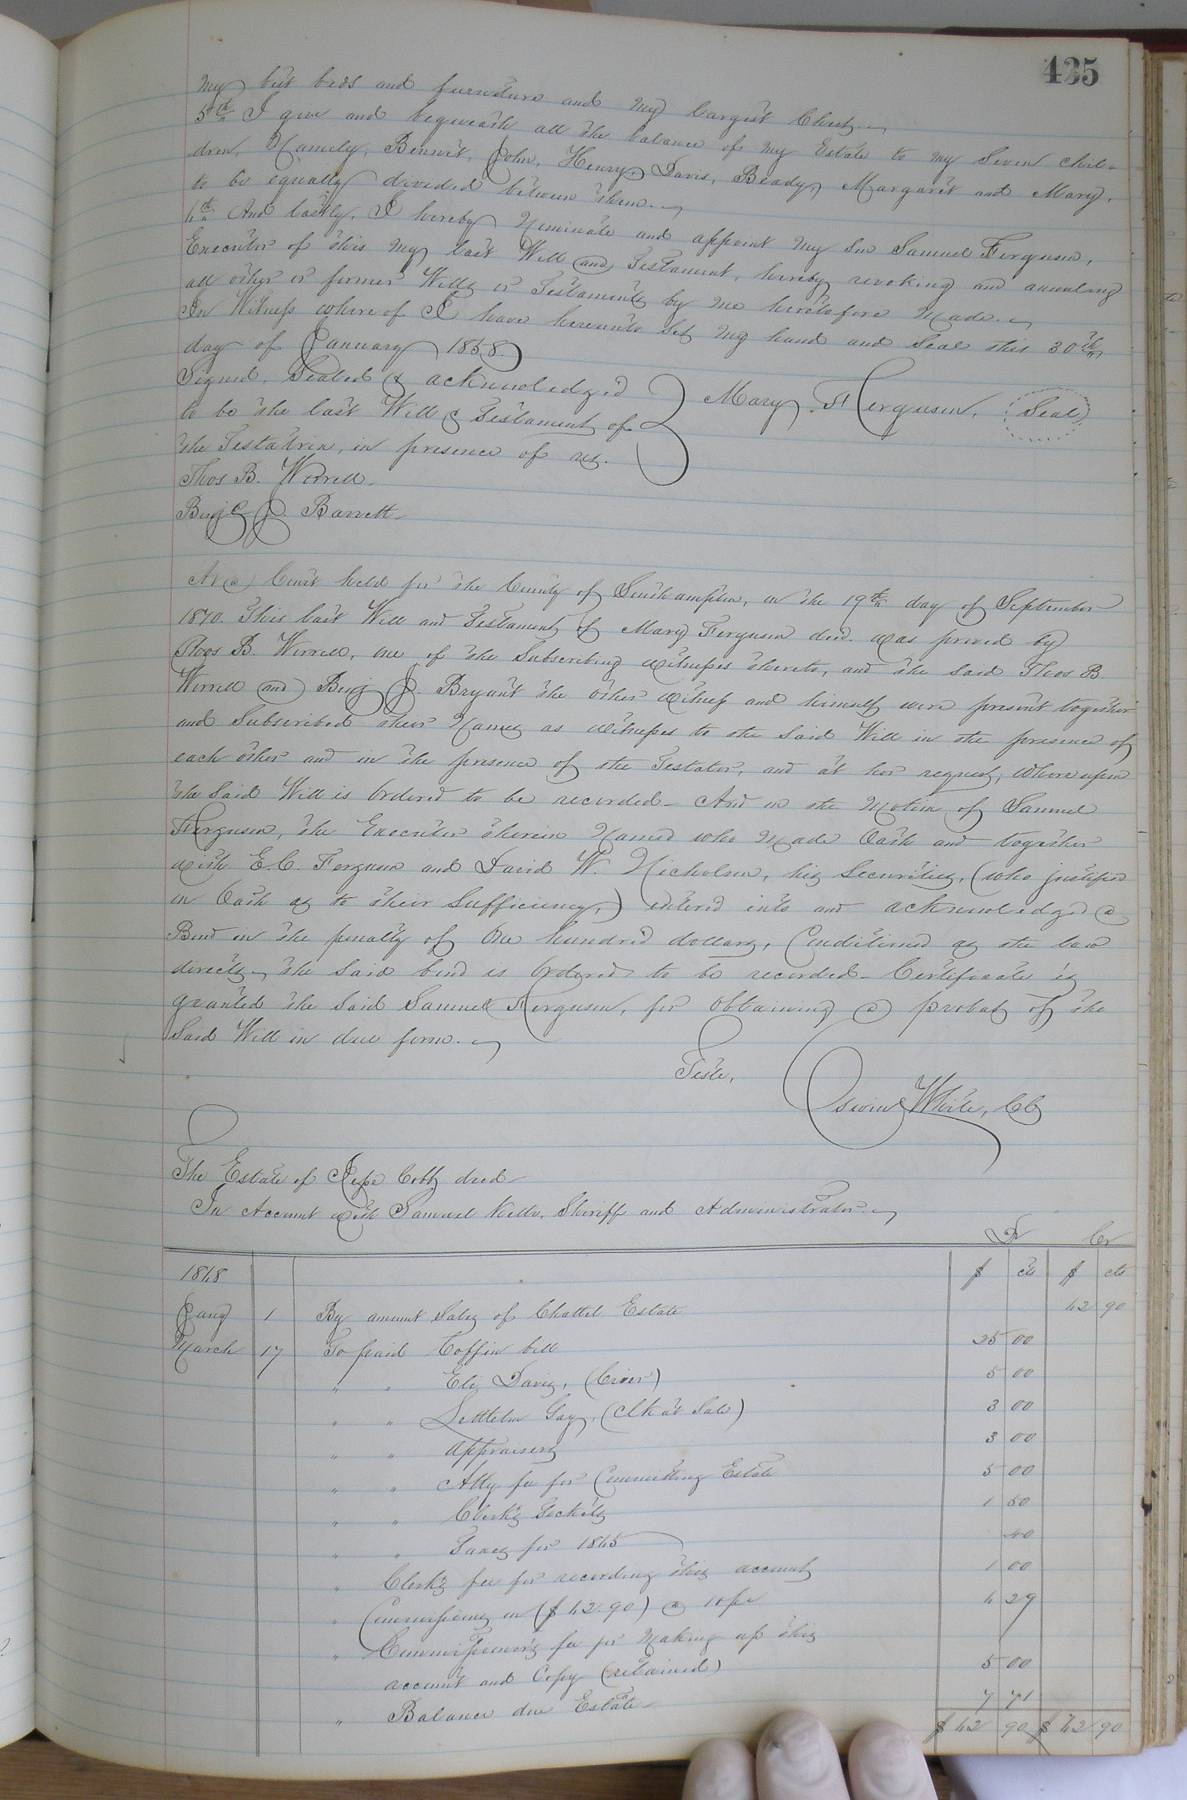 435
My best beds and furniture and My largest Chest.
5th I give and bequeath all the balance of My Estate to my Seven chil-
dren, Namely, Bennit, John, Henry, Davis, Beady, Margaret and Mary,
to be equally divided between them.
6th And lastly, I hereby Nominate and appoint My Son Samuel Ferguson,
Executor of this My last Will and Testament, hereby revoking and annuling
all other or former Wills or Testaments by me heretofore Made.
In Witness whereof I have hereunto Set My hand and Seal this 30th
day of January 1858.
Signed, Sealed & acknowledged
to be the last Will & Testament of
the Testatrix, in presence of us.
Mary Ferguson, Seal
Thos B. Worrell
Benj J. Barrett
At a Court held for the County of Southampton, on the 19th day of September
1870. This last Will and Testament of Mary Ferguson decd. was proved by
Thos B. Worrell, one of the Subscribing witnesses thereto, and the said Thos B.
Worrell and Benj J. Bryant the other witness and himself were present together
and Subscribed their Names as witnesses to the said Will in the presence of
each other and in the presence of the Testator, and at her request, Whereupon
the Said Will is Ordered to be recorded. And on the Motion of Samuel
Ferguson, the Executor therein Named who Made Oath and together
with E. C. Ferguson and David W. Nicholson, his Securities, (who justified
on Oath as to their Sufficiency,) entered into and acknowledged a
Bond in the penalty of One hundred dollars, Conditioned as the law
directs, the said bond is Ordered to be recorded. Certificate is
granted the said Samuel Ferguson, for Obtaining a probat of the
Said Will in due form.
Teste,
White, CC
The Estate of Jesse Cobb decd
In Account with Samuel Kello, Sheriff and Administrator.
Dr Cr
1868 $ cts $ cts
Jany 1 By amount Sales of Chattel Estate 42 90
March 17 To paid Coffin bill 25 00
" " Eli Davis, (Crier) 5 00
" " Gay, (Clk at Sale) 3 00
" " Appraisers 3 00
" " Atty fee for Committing Estate 5 00
" " Clerks Tickets 1 50
" " Taxes for 1865 40
" Clerks fee for recording this account 1 00
" Commissions on ($42.90) @ 10 pr 4 29
" Commissioner's fee for Making up this
account and Copy (retained) 5 00
" Balance due Estate 7 71
$42 90 $42 90